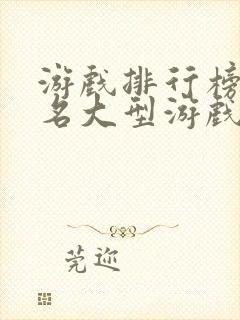 游戏排行榜
名大型游戏
莞迩